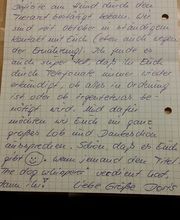 Gefühle am Hund durch den
Tierarzt bestätigt bekam. Wir
sind seit Oktober in ständigem
Kontakt mit Euch (eben auch wegen
der Ernährung). Ich finde es
auch super toll, daß Ihr Euch
durch Telefonate immer wieder
erkundigt, ob alles in Ordnung
ist oder ob irgendetwas be-
nötigt wird. Und dafür
möchten wir Euch ein ganz
großes Lob und Dankeschön
aussprechen. Schön, daß es Euch
gibt ☺. Wenn jemand den Titel
"The dog whisperer" verdient hat,
dann Ihr! Liebe Grüße Doris